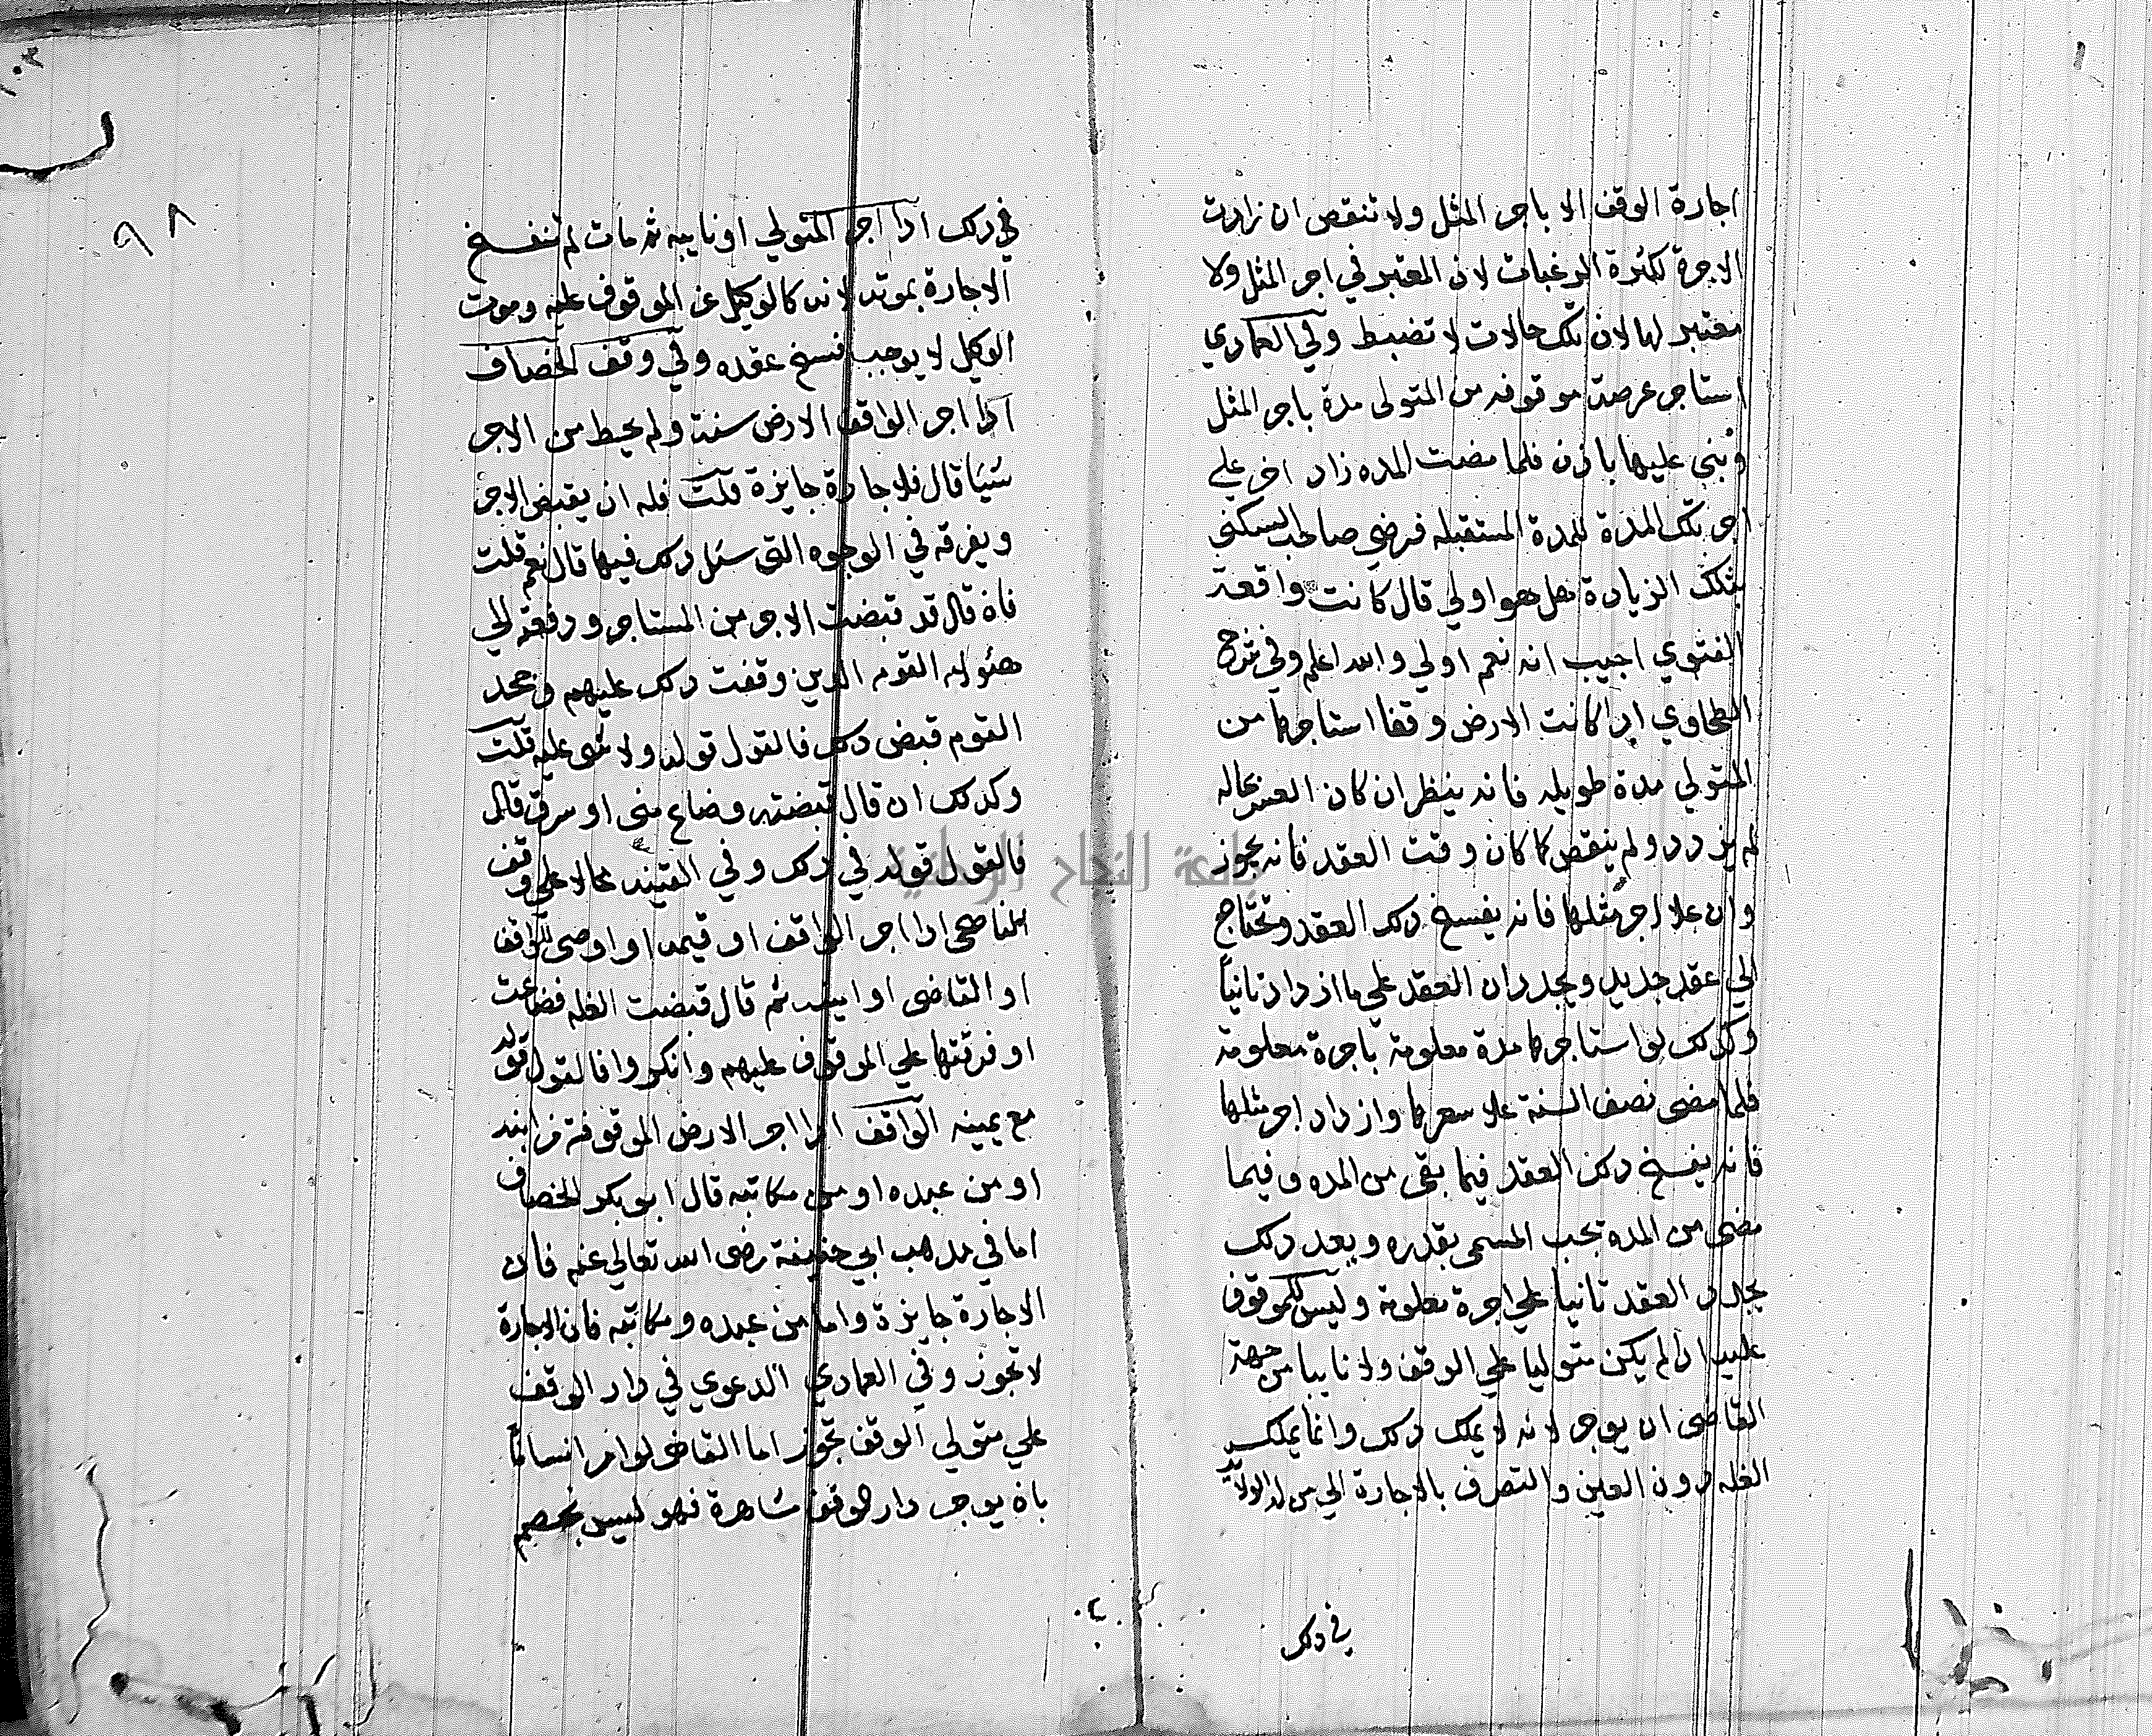 اجارة الوقف الا باجر المثل ولا تنقص ان زادت
الاجرة لكثرة الرغبات لان المعتبر في اجر المثل ولا
معتبر لها لان تلك حالات لا تضبط وفي العمادي
استاجر عرصة موقوفه من المتولى مدة باجر المثل
وبني عليها باذن فلما مضت المده زاد اخر علي
اجر تلك المدة للمدة المستقبله فرضي صاحب السكنى
بتلك الزيادة هل هو اولي قال كانت واقعة
الفتوي اجيب انه نعم اولي والله اعلم وفي شرح
الطحاوي اذا كانت الارض وقفا استاجرها من
المتولي مدة طويله فانه ينظر ان كان السعر بحاله
لم يزدد ولم ينقص كما كان وقت العقد فانه يجوز
وان علا اجر مثلها فانه يفسخ ذلك العقد وتحتاج
الي عقد جديد ويجددان العقد علي ما ازداد ثانياً
وكذلك لو استاجرها مدة معلومة باجرة معلومة
فلما مضى نصف السنة علا سعرها وازداد اجر مثلها
فانه يفسخ ذلك العقد فيما بقى من المده وفيما
مضى من المده يجب المسمى بقدره وبعد ذلك
يجدد العقد ثانيا علي اجرة معلومة وليس للموقوف
عليه اذا لم يكن متوليا علي الوقف ولا نايبا من جهة
القاضى ان يوجر لانه لا يملك ذلك وانما يملك
الغله دون العين والتصرف بالاجارة الي من له الولاية
في ذلك
٩٨
في ذلك اذا اجر المتولي او نايبه ثم مات لم تنفسخ
الاجارة بموته لانه كالوكيل عن الموقوف عليه وموت
الوكيل لا يوجب فسخ عقده وفي وقف الخصاف
اذا اجر الواقف الارض سنة ولم يحط من الاجر
شيًا قال فالاجارة جايزة قلت فله ان يقبض الاجر
ويفرقه في الوجوه التى سبل ذلك فيها قال نعم قلت
فان قال قد قبضت الاجر من المستاجر ودفعته الي
هئولاء القوم الذين وقفت ذلك عليهم وجحد
القوم قبض ذلك فالقول قوله ولا شى عليه قلت
وكذلك ان قال قبضته وضاع منى او سرق قال
فالقول قوله في ذلك وفي القنيه على وقف
الناصحى اذا اجر الواقف او قيمه او اوصى الواقف
او القاضى او امينه ثم قال قبضت الغله فضاعت
او فرقتها علي الموقوف عليهم وانكروا فالقول قوله
مع يمينه الواقف اذا اجر الارض الموقوفة من ابنه
او من عبده او من مكاتبه قال ابو بكر الخصاف
اما في مذهب ابي حنيفة رضى الله تعالي عنه فان
الاجارة جايزة واما من عبده ومكاتبه فان الاجارة
لا تجوز وفي العمادي الدعوي في دار الوقف
علي متولي الوقف تجوز اما القاضى لو امر انساناً
بان يوجر دار الوقف مشاهرة فهو ليس بخصم
جامعة النجاح الوطنية